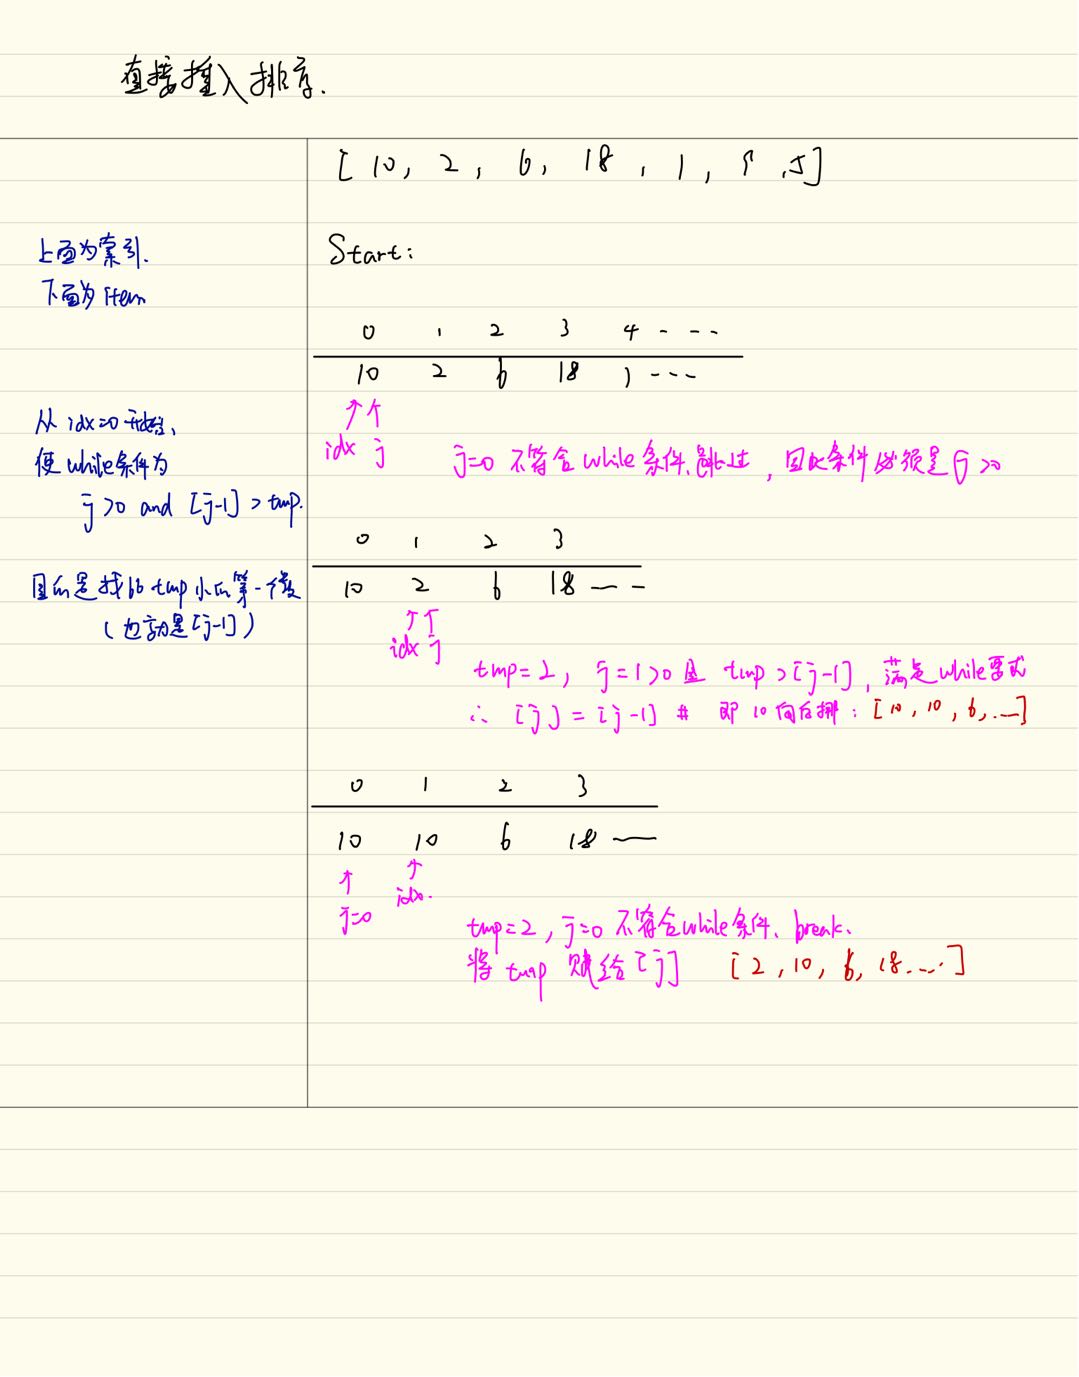 直接插入排序.
[ 10, 2, 6, 18, 1, 9, 5]
上面为索引.
下面为 Item
Start:
0 1 2 3 4 - - --
10 2 6 18 1 - - -
idx j
从 idx=0 开始、
使 while 条件为
j>0 and [j-1] > tmp.
j=0 不符合 while 条件、跳过, 因此条件必须是 j >0
0 1 2 3
10 2 6 18 — —
目的是找比 tmp 小的第一个数
(也就是[j-1])
idx j
tmp=2, j=1>0 且 tmp>[j-1], 满足while要求
∴ [j] = [j-1] # 即 10 向后挪: [10, 10, 6, ...]
0 1 2 3
10 10 6 18 —
j=0 idx.
tmp=2, j=0 不符合while条件、break、
将 tmp 赋给 [j] [2, 10, 6, 18....]